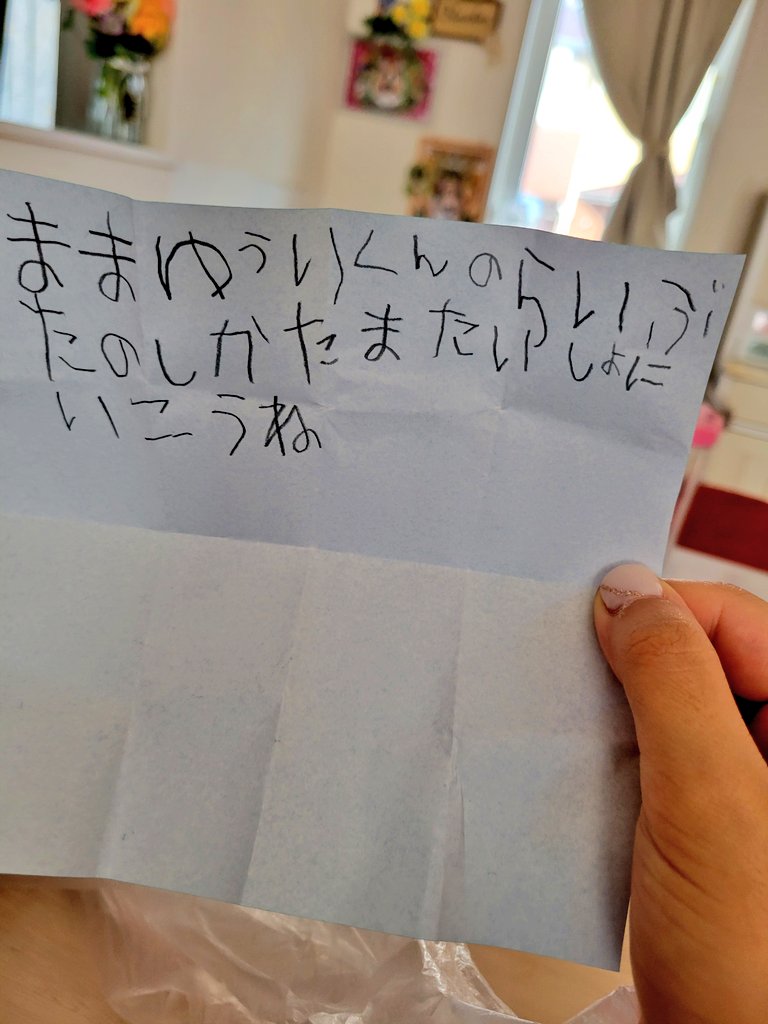 ままゆういくんのらいぶ
たのしかたまたいしょに
いこうね